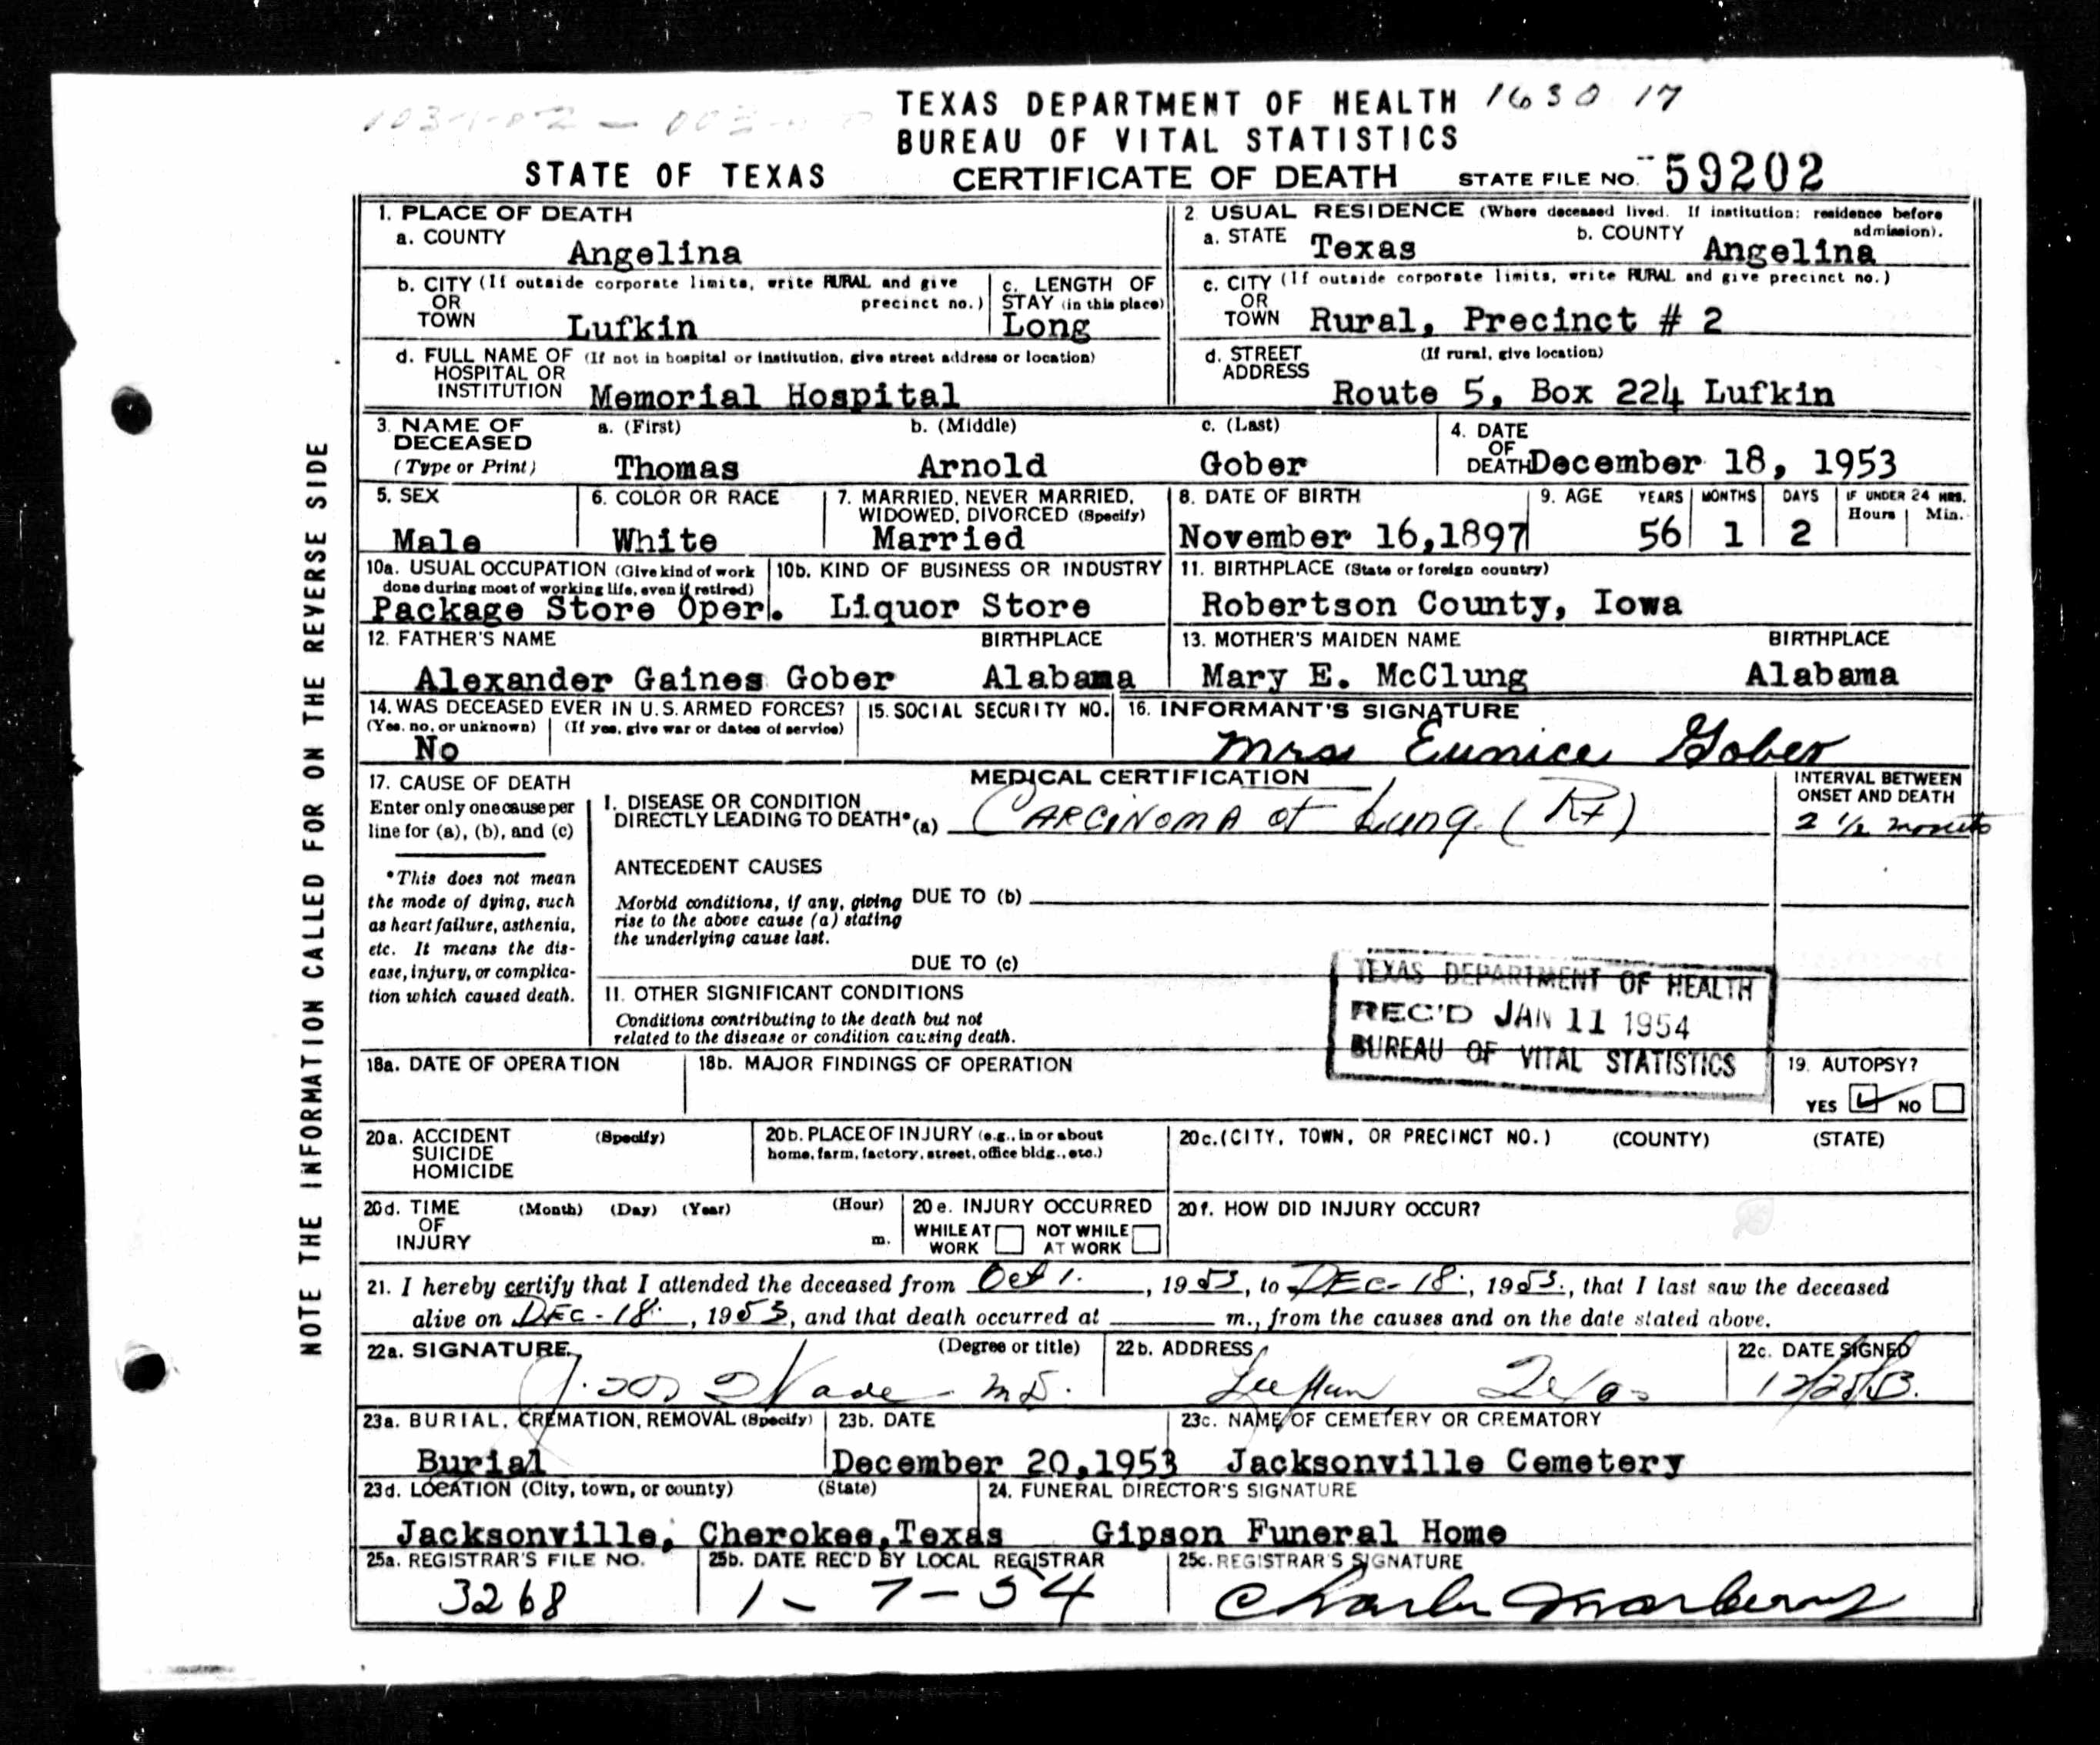 TEXAS DEPARTMENT OF HEALTH 1630 17
BUREAU OF VITAL STATISTICS
STATE OF TEXAS CERTIFICATE OF DEATH STATE FILE NO. 59202
NOTE THE INFORMATION CALLED FOR ON THE REVERSE SIDE
1. PLACE OF DEATH
a. COUNTY Angelina
2. USUAL RESIDENCE (Where deceased lived. If institution: residence before admission).
a. STATE Texas b. COUNTY Angelina
b. CITY (If outside corporate limits, write RURAL and give precinct no.)
OR
TOWN Lufkin
c. LENGTH OF
STAY (in this place)
Long
c. CITY (If outside corporate limits, write RURAL and give precinct no.)
OR
TOWN Rural, Precinct # 2
d. FULL NAME OF (If not in hospital or institution, give street address or location)
HOSPITAL OR
INSTITUTION Memorial Hospital
d. STREET (If rural, give location)
ADDRESS
Route 5, Box 224 Lufkin
3. NAME OF DECEASED (Type or Print)
a. (First) b. (Middle) c. (Last)
Thomas Arnold Gober
4. DATE
OF
DEATH December 18, 1953
5. SEX
Male
6. COLOR OR RACE
White
7. MARRIED, NEVER MARRIED,
WIDOWED, DIVORCED (Specify)
Married
8. DATE OF BIRTH
November 16,1897
9. AGE YEARS MONTHS DAYS IF UNDER 24 HRS.
Hours Min.
56 1 2
10a. USUAL OCCUPATION (Give kind of work
done during most of working life, even if retired)
Package Store Oper.
10b. KIND OF BUSINESS OR INDUSTRY
Liquor Store
11. BIRTHPLACE (State or foreign country)
Robertson County, Iowa
12. FATHER'S NAME BIRTHPLACE
Alexander Gaines Gober Alabama
13. MOTHER'S MAIDEN NAME BIRTHPLACE
Mary E. McClung Alabama
14. WAS DECEASED EVER IN U.S. ARMED FORCES?
(Yes, no, or unknown) (If yes, give war or dates of service)
No
15. SOCIAL SECURITY NO.
16. INFORMANT'S SIGNATURE
Mrs Eunice Gober
17. CAUSE OF DEATH
Enter only one cause per
line for (a), (b), and (c)
*This does not mean
the mode of dying, such
as heart failure, asthenia,
etc. It means the dis-
ease, injury, or complica-
tion which caused death.
MEDICAL CERTIFICATION
I. DISEASE OR CONDITION
DIRECTLY LEADING TO DEATH* (a) Carcinoma of Lung (Rt)
INTERVAL BETWEEN
ONSET AND DEATH
2 1/2 months
ANTECEDENT CAUSES
Morbid conditions, if any, giving
rise to the above cause (a) stating
the underlying cause last.
DUE TO (b)
DUE TO (c)
II. OTHER SIGNIFICANT CONDITIONS
Conditions contributing to the death but not
related to the disease or condition causing death.
TEXAS DEPARTMENT OF HEALTH
REC'D JAN 11 1954
BUREAU OF VITAL STATISTICS
18a. DATE OF OPERATION
18b. MAJOR FINDINGS OF OPERATION
19. AUTOPSY?
YES NO
20a. ACCIDENT (Specify)
SUICIDE
HOMICIDE
20b. PLACE OF INJURY (e.g., in or about
home, farm, factory, street, office bldg., etc.)
20c. (CITY, TOWN, OR PRECINCT NO.) (COUNTY) (STATE)
20d. TIME (Month) (Day) (Year) (Hour)
OF
INJURY m.
20e. INJURY OCCURRED
WHILE AT WORK NOT WHILE AT WORK
20f. HOW DID INJURY OCCUR?
21. I hereby certify that I attended the deceased from Oct 1., 1953, to Dec-18., 1953., that I last saw the deceased
alive on Dec-18., 1953, and that death occurred at m., from the causes and on the date stated above.
22a. SIGNATURE (Degree or title)
M.D.
22b. ADDRESS
Lufkin Texas
22c. DATE SIGNED
23a. BURIAL, CREMATION, REMOVAL (Specify)
Burial
23b. DATE
December 20,1953
23c. NAME OF CEMETERY OR CREMATORY
Jacksonville Cemetery
23d. LOCATION (City, town, or county) (State)
Jacksonville, Cherokee,Texas
24. FUNERAL DIRECTOR'S SIGNATURE
Gipson Funeral Home
25a. REGISTRAR'S FILE NO.
3268
25b. DATE REC'D BY LOCAL REGISTRAR
1-7-54
25c. REGISTRAR'S SIGNATURE